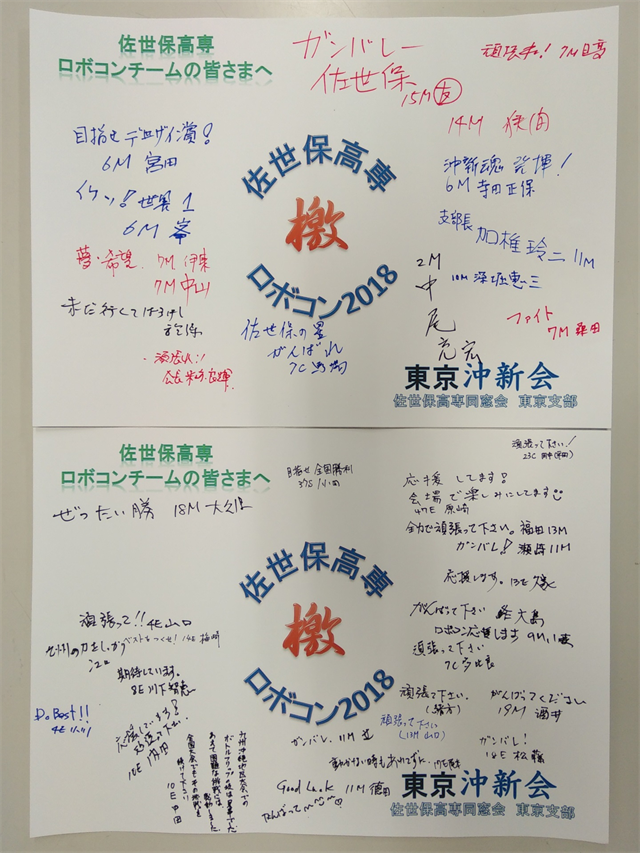 佐世保高専
ロボコンチームの皆さまへ
ガンバレー
佐世保
15M 友
頑張れ! 7M 日高
14M
目指せ デザイン賞!
6M 宮田
イケソ! 世界 1
6M 峯
夢・希望 7M 伊東
7M 中山
佐世保高専
檄
ロボコン2018
沖新魂 発揮!
6M 寺田正保
支部長
加椎 玲二 11M
10M 深堀恵三
2M
中
尾
充宏
ファイト
7M 桑田
佐世保の星
がんばれ
7C 馬場
東京 沖新会
佐世保高専同窓会 東京支部
佐世保高専
ロボコンチームの皆さまへ
ぜったい勝 18M 大久保
目指せ 全国勝利
頑張って下さい!
応援 してます!
会場で楽しみにしてます
47E 原崎
全力で頑張って下さい。 福田 13M
ガンバレ! 瀬崎 11M
応援します。 13E
がんばって下さい 大島
ロボコン応援します 9M
頑張って下さい
7C 多比良
佐世保高専
檄
ロボコン2018
頑張って!! 4E 山口
ベストをつくせ! 14E 梅崎
期待しています。
8E 川下 智恵
Do Best!!
4E
応援しています!
頑張って下さい。
10E
九州沖縄地区大会での
ボトルフリップの技は見事でした
あえて困難な挑戦には
感動しました
全国大会でもその挑戦を
続けて下さい
10E 中田
頑張て下さい。
(緒方)
がんばってください
19M 酒井
頑張って下さい
(11M 山口)
ガンバレ 11M
ガンバレ!
18E 松藤
動かない時もあわてずに
Good Luck 11M 徳田
がんばって
東京 沖新会
佐世保高専同窓会 東京支部